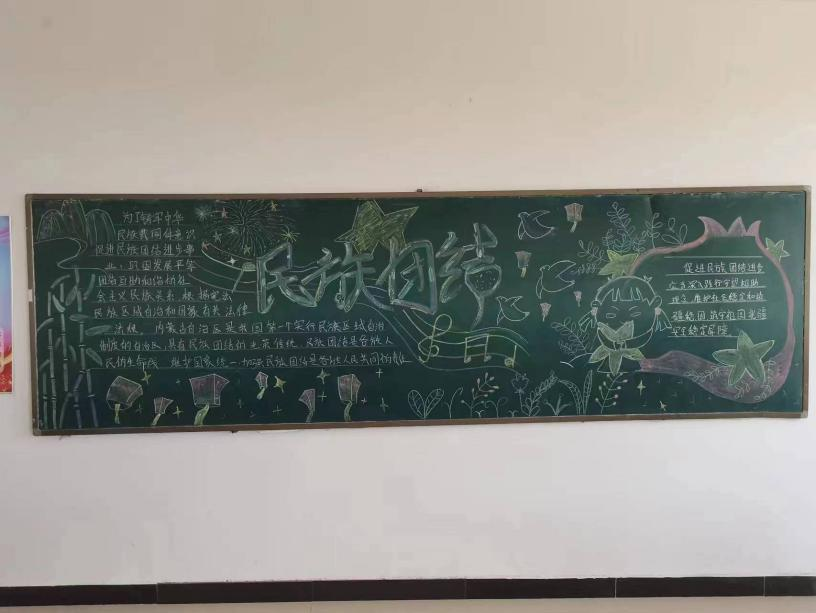 民族团结
为了铸牢中华
民族共同体意识
促进民族团结进步事
业，巩固发展平等
团结互助和谐的社
会主义民族关系，根据宪法
民族区域自治和国家有关法律
法规，内蒙古自治区是我国第一个实行民族区域自治
制度的自治区，具有民族团结的光荣传统，民族团结是各族人
民的生命线，维护国家统一，加强民族团结是各族人民共同的责任
促进民族团结进步
守望相助
理念，维护社会稳定和边
疆稳固，筑牢祖国北疆
安全稳定屏障